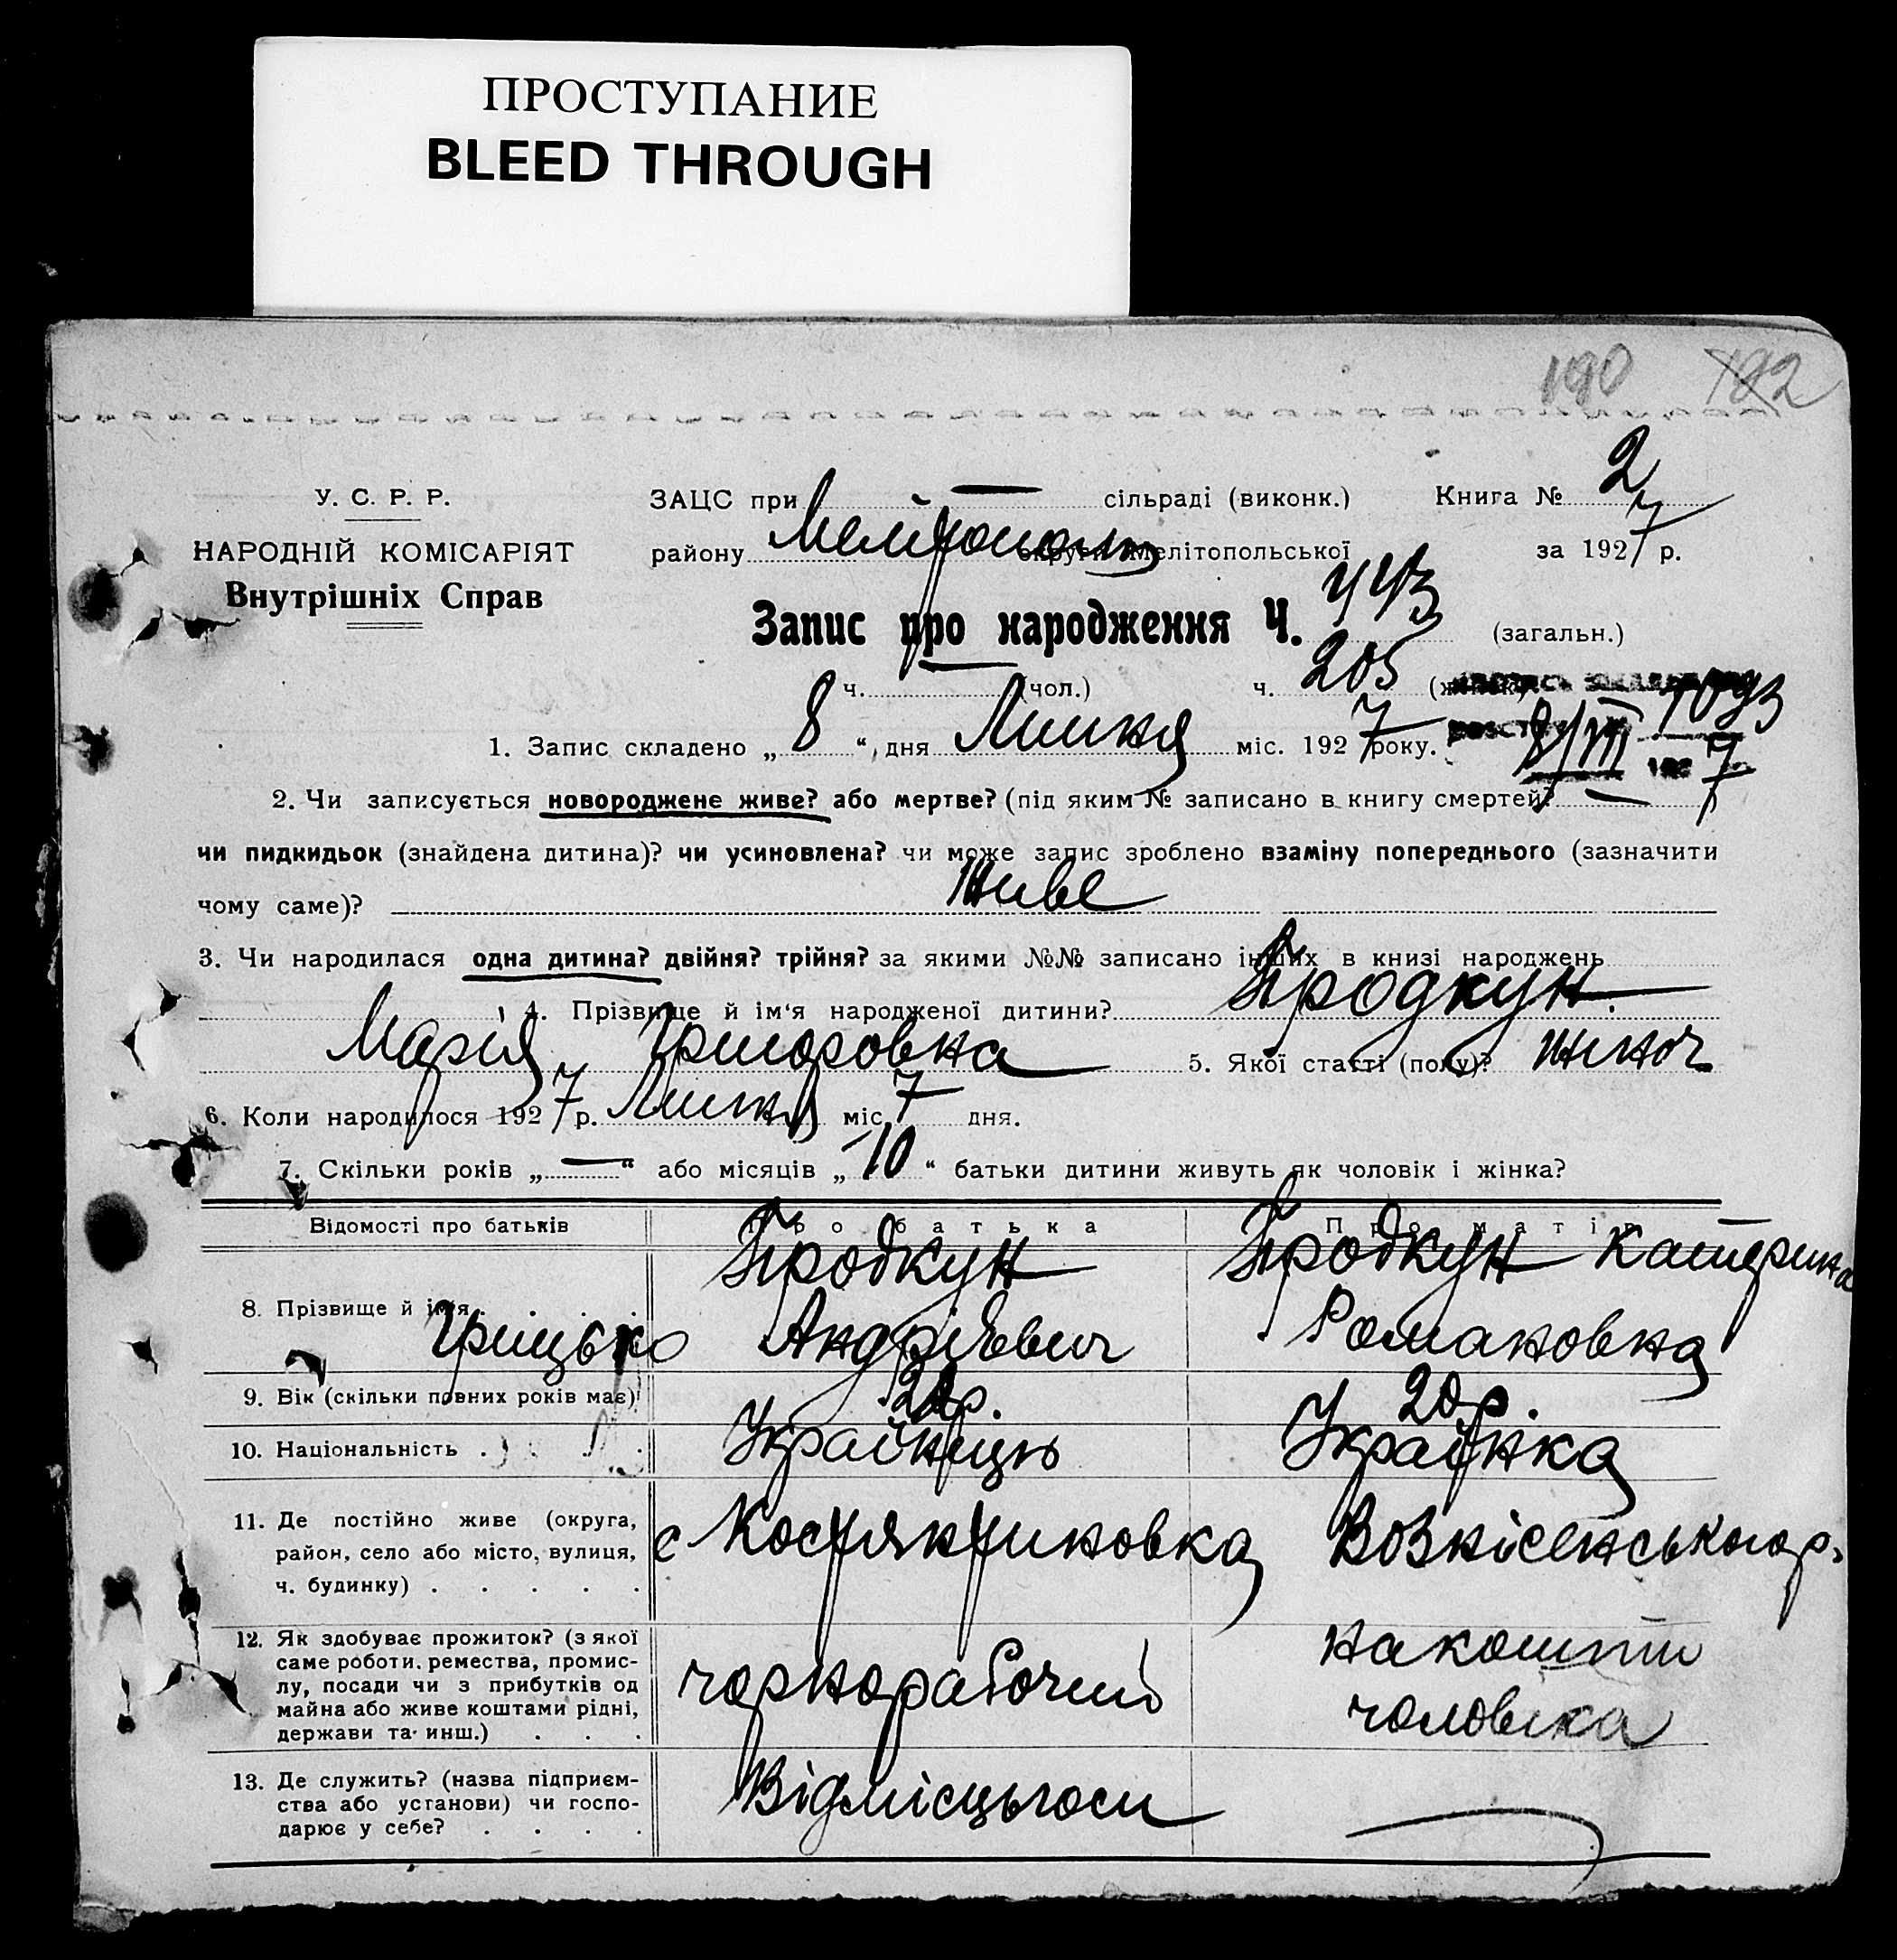 ПРОСТУПАНИЕ
BLEED THROUGH
190 192
У. С. Р. Р.
НАРОДНІЙ КОМІСАРІЯТ
Внутрішніх Справ
ЗАЦС при — сільраді (виконк.) Книга № 2
району Мелітополь округи Мелітопольської за 1927 р.
Запис про народження Ч. 443 (загальн.)
ч. (чол.) ч. 205 (жіноч.)
1. Запис складено „ 8 “ дня Липня міс. 1927 року.
8/VII 7
2. Чи записується новороджене живе? або мертве? (під яким № записано в книгу смертей? —
чи пидкидьок (знайдена дитина)? чи усиновлена? чи може запис зроблено взаміну попереднього (зазначити
чому саме)? живе
3. Чи народилася одна дитина? двійня? трійня? за якими №№ записано інших в книзі народжень
4. Прізвище й ім‘я народженої дитини? Продкун
Марія Григоровна 5. Якої статті (полу)? жіноч
6. Коли народилося 1927 р. Липня міс. 7 дня.
7. Скільки років „ — “ або місяців „ 10 “ батьки дитини живуть як чоловік і жінка?
Відомості про батьків Про батька Про матір
8. Прізвище й ім‘я . . . . Продкун Грицько Андрієвич Продкун Катерина Романовна
9. Вік (скільки повних років має) р. 20 р.
10. Національність . . . . Українець Українка
11. Де постійно живе (округа,
район, село або місто, вулиця,
ч. будинку) . . . . .
с Костянтиновка Вознісенського р.
12. Як здобуває прожиток? (з якої
саме роботи, ремества, промис-
лу, посади чи з прибутків од
майна або живе коштами рідні,
держави та инш.) . . .
чорнорабочий
на кошти
чоловіка
13. Де служить? (назва підприєм-
ства або установи) чи госпо-
дарює у себе? . . . .
Відмісцьгосп